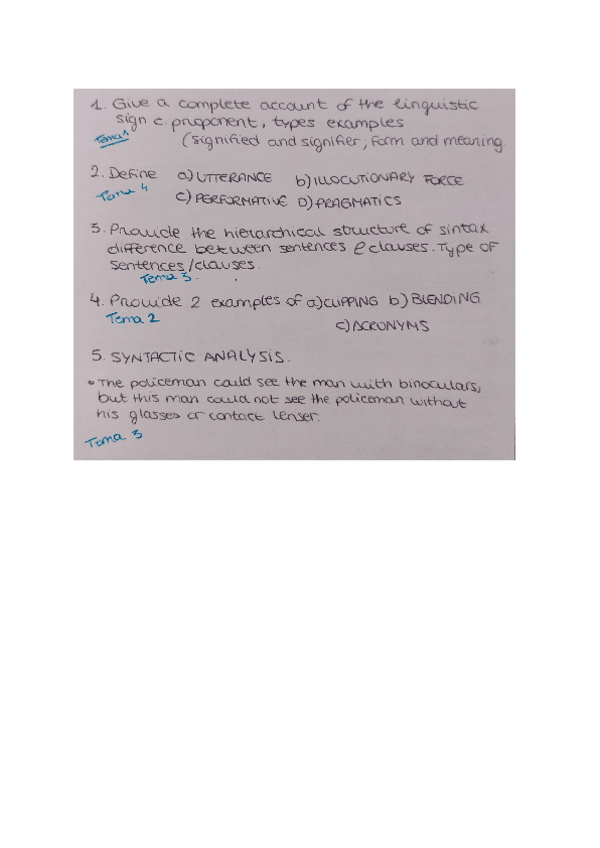 1. Give a complete account of the linguistic
sign c. proponent, types examples
Tema 1
(signified and signifier, form and meaning.
2. Define a) UTTERANCE b) ILLOCUTIONARY FORCE
Tema 4
C) PERFORMATIVE D) PRAGMATICS
3. Provide the hierarchical structure of sintax
difference between sentences e clauses. Type of
sentences/clauses.
Tema 3.
4. Provide 2 examples of a) CLIPPING b) BLENDING
Tema 2
C) ACRONYMS
5. SYNTACTIC ANALYSIS.
• The policeman could see the man with binoculars,
but this man could not see the policeman without
his glasses or contact lenser.
Tema 3